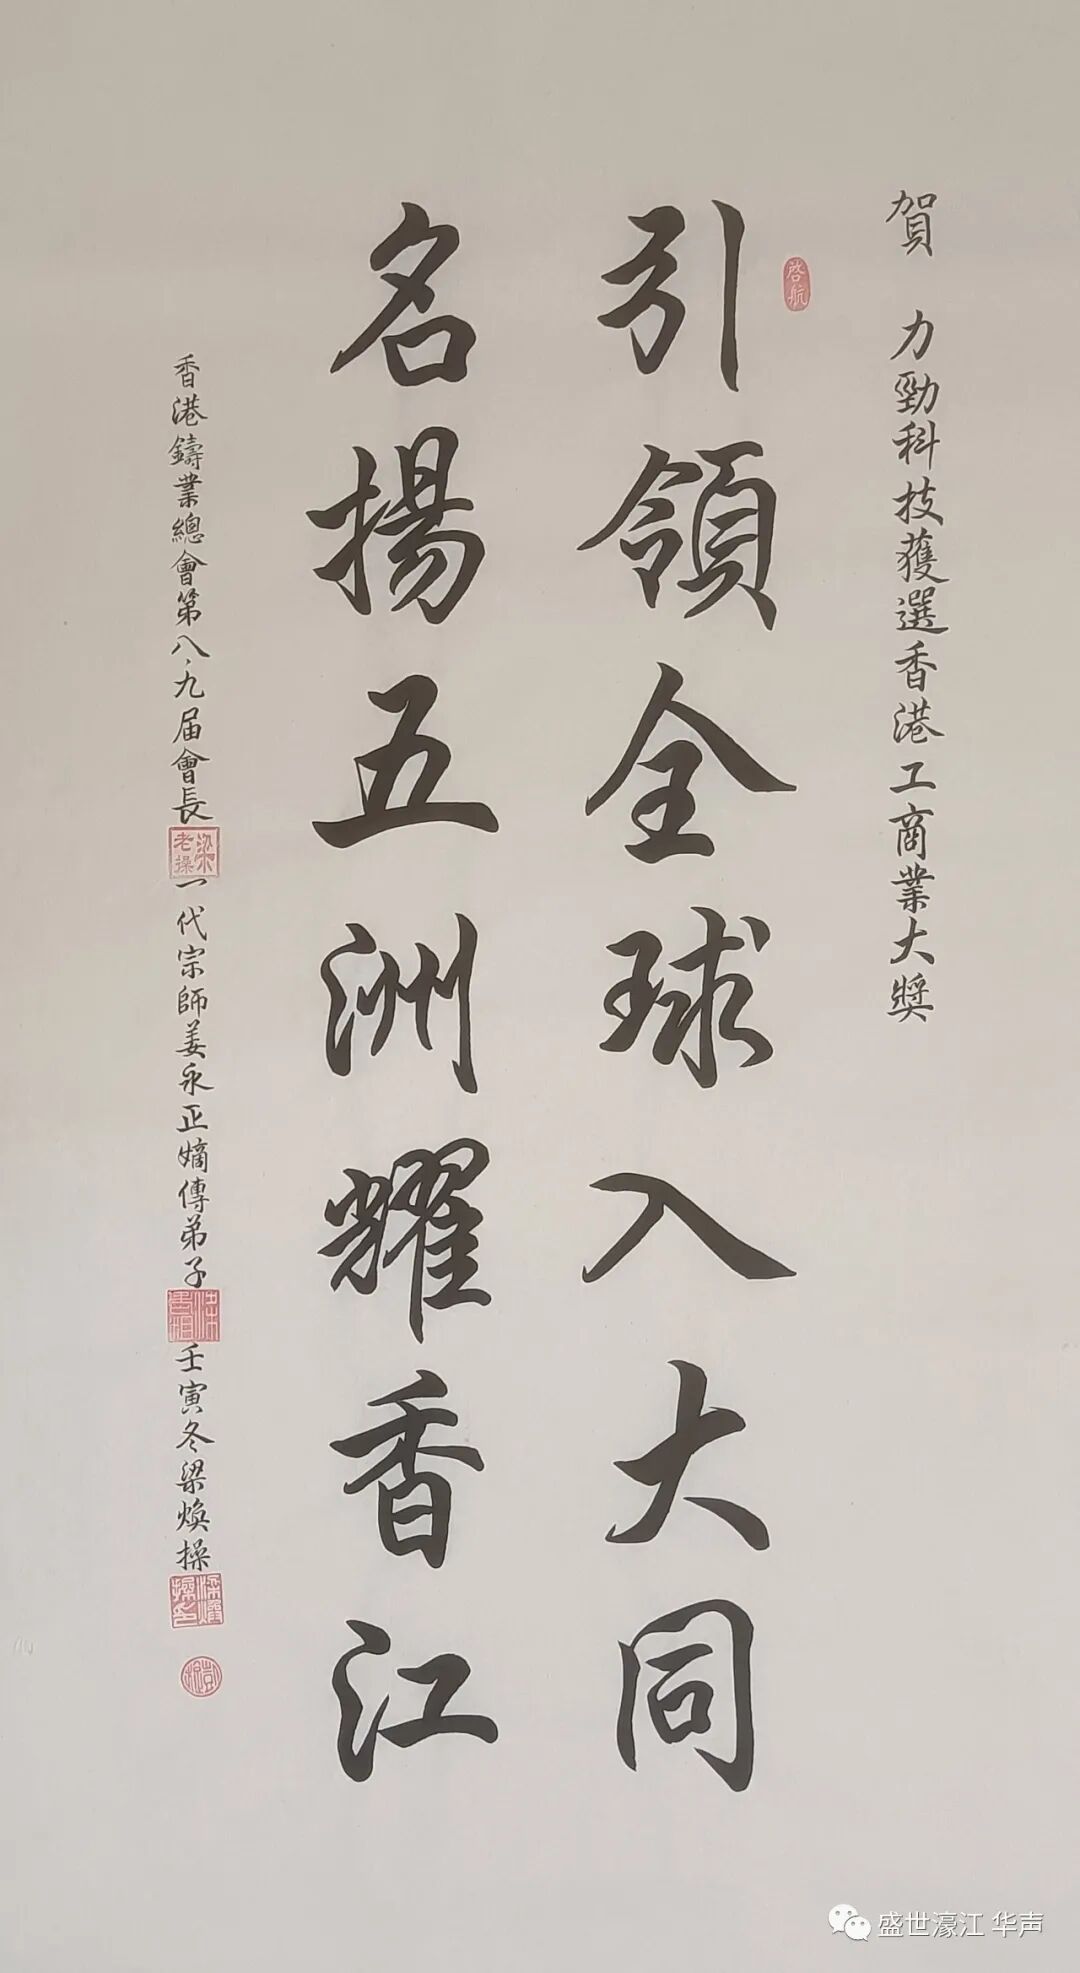 賀　力勁科技獲選香港工商業大獎
啓航
引領全球入大同
名揚五洲耀香江
香港鑄業總會第八、九届會長
梁老操
一代宗師姜永正嫡傳弟子
壬寅冬梁煥操
盛世濠江 华声